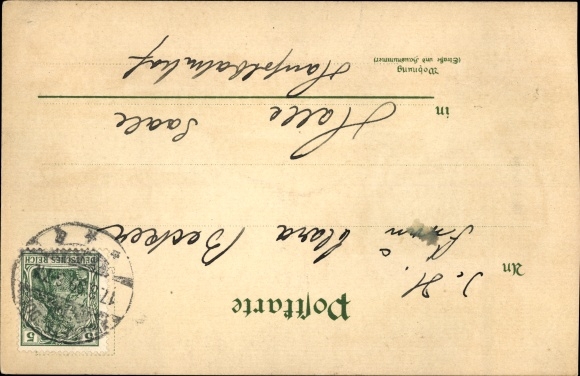 Postkarte
An
J. H.
Frau Clara Becker
in Halle
Saale
Wohnung
(Straße und Hausnummer)
Hauptbahnhof
DEUTSCHES REICH
5 5